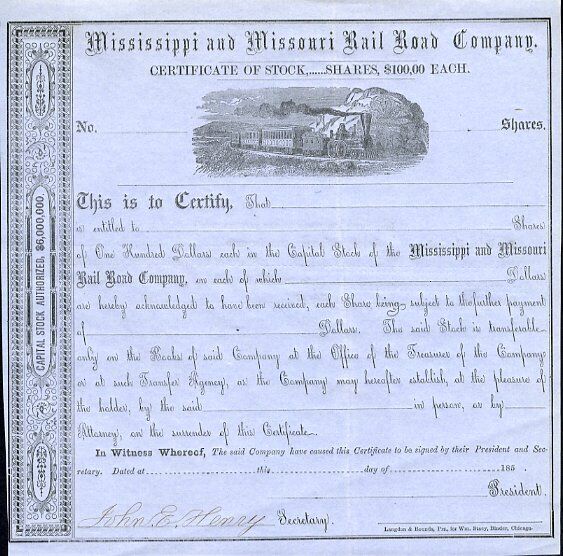 Mississippi and Missouri Rail Road Company.
CERTIFICATE OF STOCK,......SHARES, $100,00 EACH.
No.
Shares.
This is to Certify, That
is entitled to Shares
of One Hundred Dollars each in the Capital Stock of the Mississippi and Missouri
Rail Road Company, on each of which Dollars
are hereby acknowledged to have been received, each Share being subject to the further payment
of Dollars. The said Stock is transferable
only on the Books of said Company at the Office of the Treasurer of the Company
or at such Transfer Agency, as the Company may hereafter establish, at the pleasure of
the holder, by the said in person, or by
Attorney, on the surrender of this Certificate.
In Witness Whereof, The said Company have caused this Certificate to be signed by their President and Sec-
retary. Dated at this day of 185 .
President.
John E. Henry Secretary.
Langdon & Rounds, Prs., for Wm. Stacy, Binder, Chicago.
CAPITAL STOCK AUTHORIZED, $6,000,000.